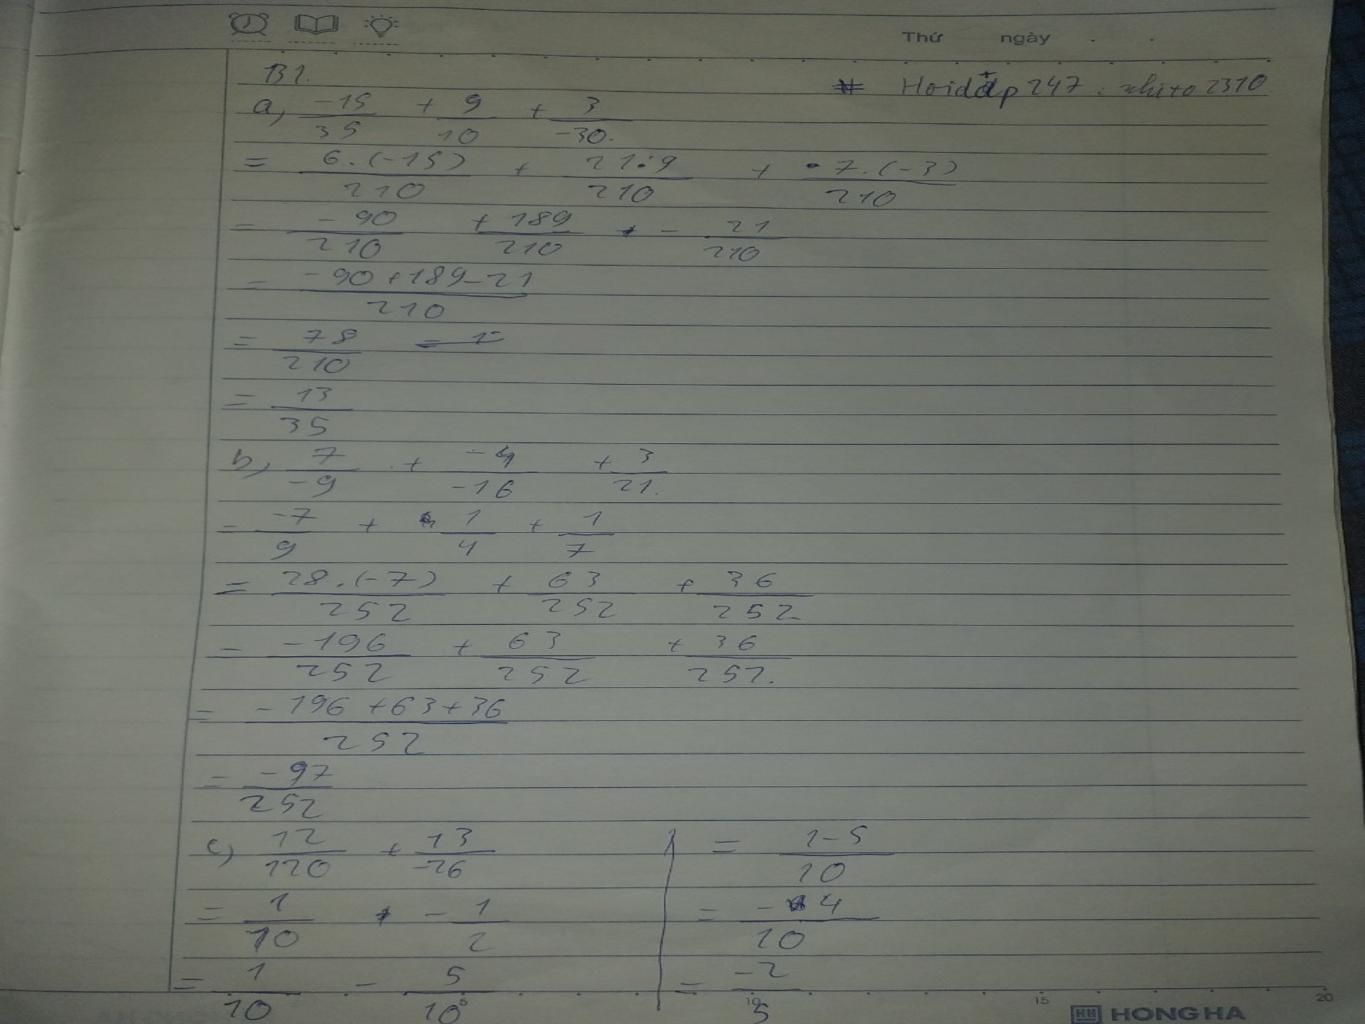 Thứ ngày
B1.
# Hoidap247 : nhito2310
a, -15/35 + 9/10 + 3/-30.
= 6.(-15)/210 + 21.9/210 + 7.(-3)/210
= -90/210 + 189/210 - 21/210
= -90+189-21/210
= 78/210
= 13/35
b, 7/-9 + -4/-16 + 3/21.
= -7/9 + 1/4 + 1/7
= 28.(-7)/252 + 63/252 + 36/252
= -196/252 + 63/252 + 36/252.
= -196+63+36/252
= -97/252
c) 12/120 + 13/-26
= 1/10 - 1/2
= 1/10 - 5/10
= 1-5/10
= -4/10
= -2/5
5 10 15 20
HONG HA